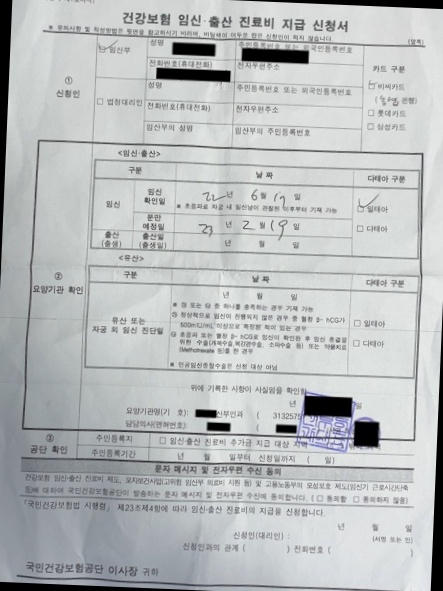 건강보험 임신·출산 진료비 지급 신청서
※ 유의사항 및 작성방법은 뒷면을 참고하시기 바라며, 바탕색이 어두운 란은 신청인이 적지 않습니다. (앞쪽)
① 신청인
임산부
성명
주민등록번호 또는 외국인등록번호
전화번호(휴대전화)
전자우편주소
카드 구분
비씨카드
( 은행)
□ 롯데카드
□ 삼성카드
□ 법정대리인
성명
주민등록번호 또는 외국인등록번호
전화번호(휴대전화)
전자우편주소
임산부의 성명
임산부의 주민등록번호
② 요양기관 확인
<임신·출산>
구분
날 짜
다태아 구분
임신
임신 확인일
22년 6월 17일
※ 초음파로 자궁 내 임신낭이 관찰된 이후부터 기재 가능
분만 예정일
23년 2월 19일
일태아
□ 다태아
출산 (출생)
출산일 (출생일)
년 월 일
<유산>
구분
날 짜
다태아 구분
유산 또는 자궁 외 임신 진단일
년 월 일
※ ㉮ 또는 ㉯ 중 하나를 충족하는 경우 기재 가능
㉮ 정상적으로 임신이 진행되지 않은 경우 중 혈청 β- hCG가 500mIU/mL 이상으로 측정된 적이 있는 경우
㉯ 초음파 또는 혈청 β- hCG로 임신이 확인된 후 임신 종결을 위한 수술(개복수술, 복강경수술, 소파수술 등) 또는 약물치료(Methotrexate 등)를 한 경우
※ 인공임신중절수술은 신청 대상 아님
□ 일태아
□ 다태아
위에 기록한 사항이 사실임을 확인함.
일
요양기관명(기 호): 산부인과 ( 3132575
담당의사(면허번호):
③ 공단 확인
주민등록지
□ 임신·출산 진료비 추가금 지급 대상 지역
주민등록기간
년 월 일부터 신청일까지 ( 일)
문자 메시지 및 전자우편 수신 동의
건강보험 임신·출산 진료비 제도, 모자보건사업(고위험 임산부 의료비 지원 등) 및 고용노동부의 모성보호 제도(임신기 근로시간단축 등)에 대하여 국민건강보험공단이 발송하는 문자 메시지 및 전자우편 수신에 동의합니다. (□ 동의함 □ 동의하지 않음)
「국민건강보험법 시행령」 제23조제4항에 따라 임신·출산 진료비의 지급을 신청합니다.
년 월 일
신청인(대리인) : (서명 또는 인)
신청인과의 관계 ( ) 전화번호 ( )
국민건강보험공단 이사장 귀하